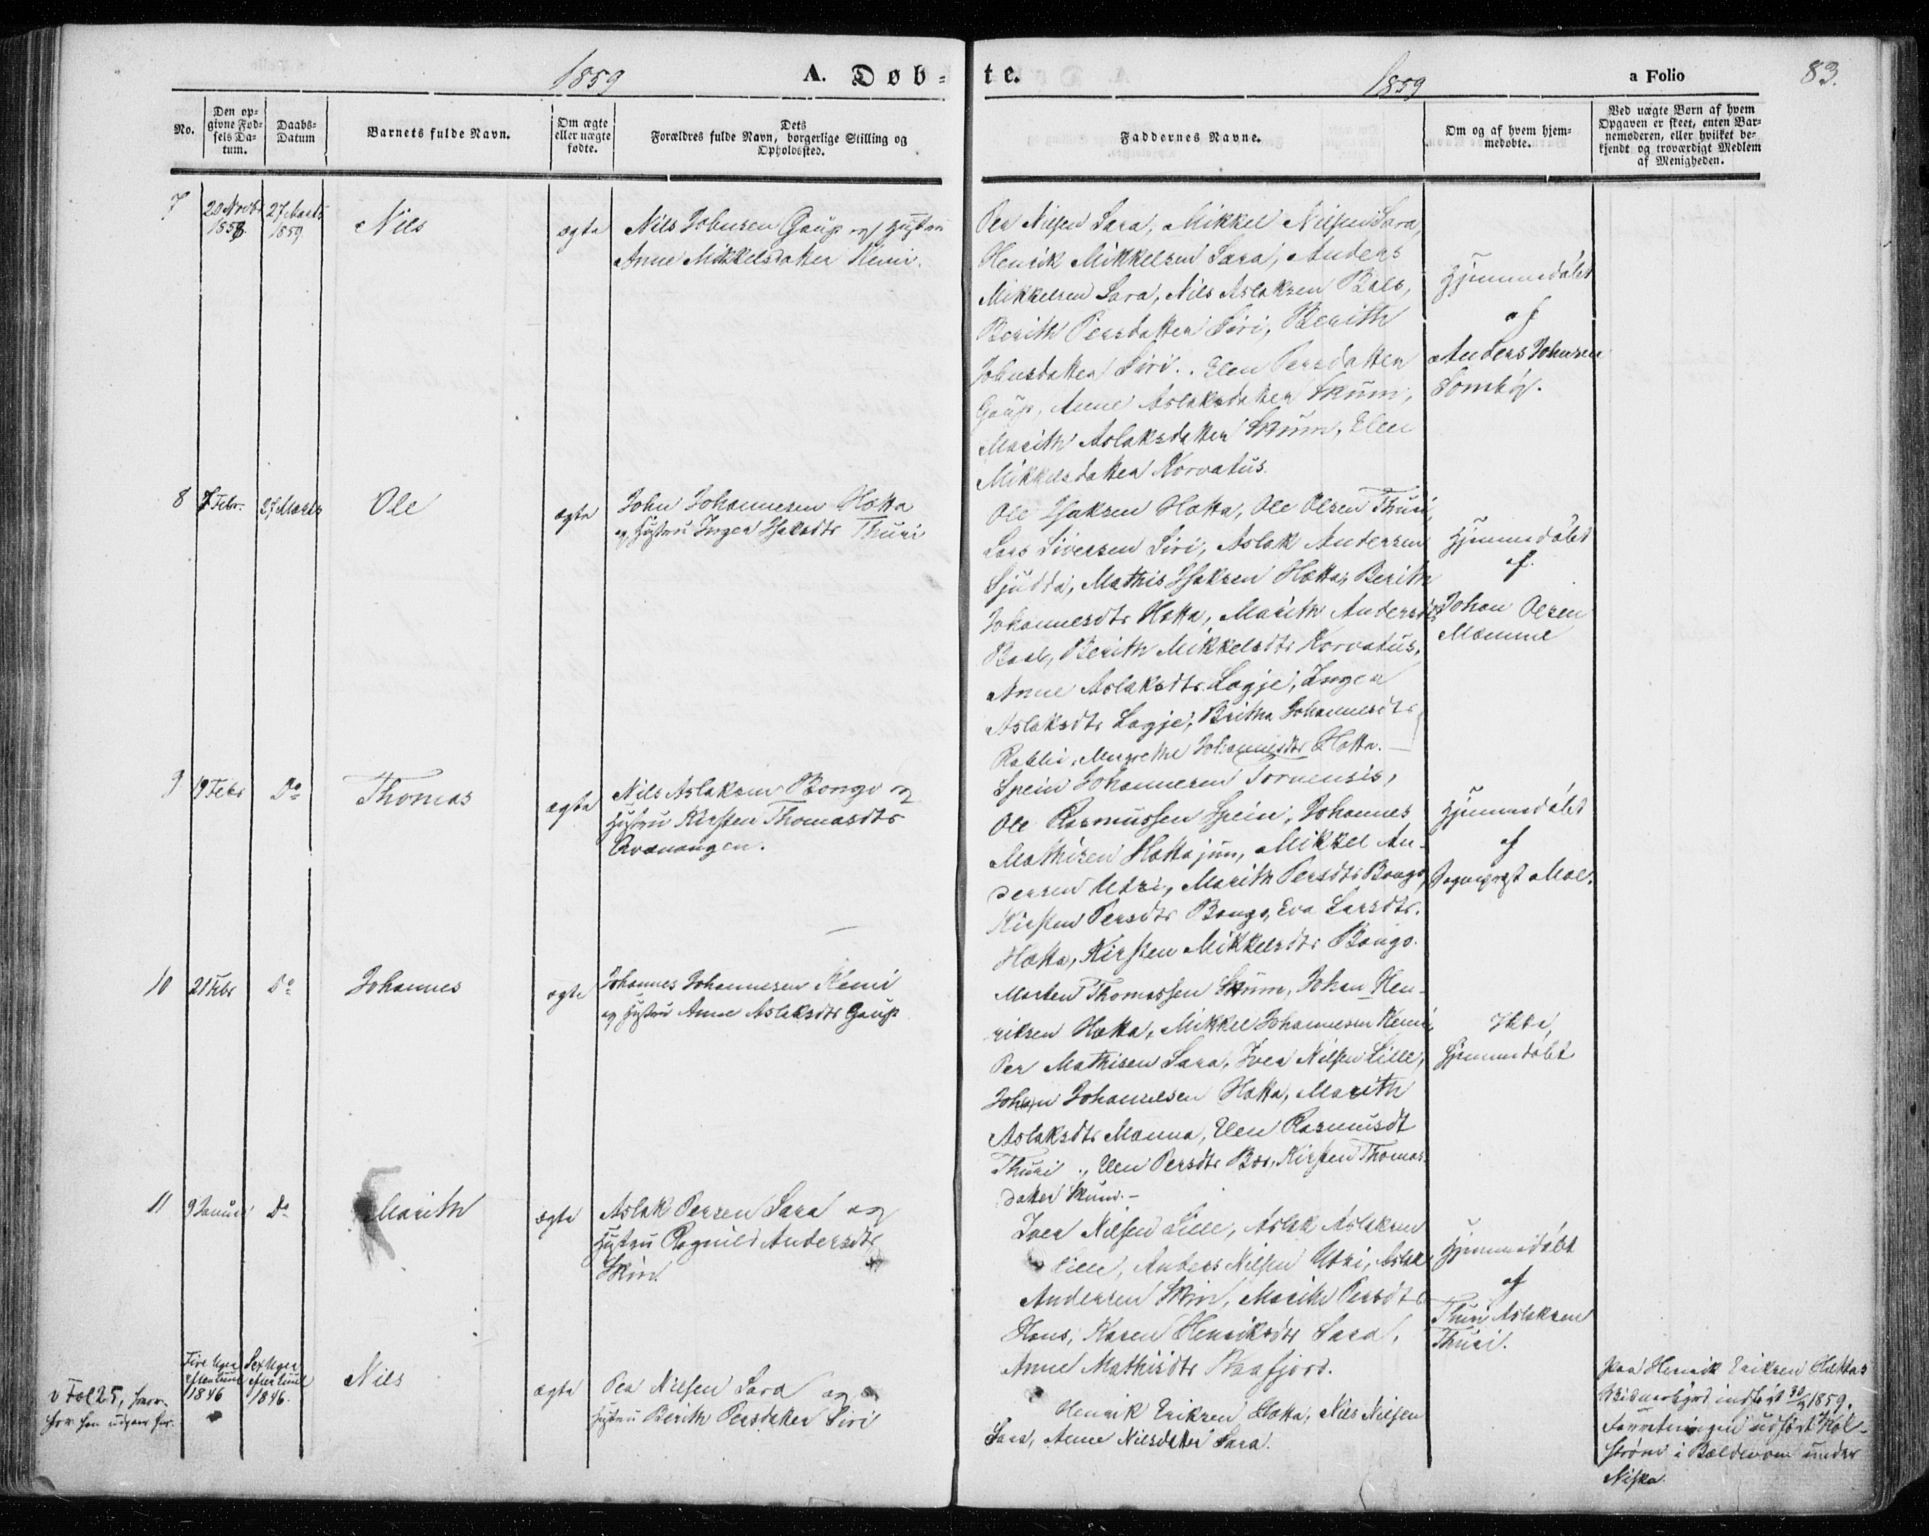 1859
A. Døb-
te.
1859
a Folio
83.
No.
Den op-
givne Fød-
sels Da-
tum.
Daabs-
Datum
Barnets fulde Navn.
Om ægte
eller uægte
fødte.
Dets
Forældres fulde Navn, borgerlige Stilling og
Opholdssted.
Faddernes Navne.
Om og af hvem hjem-
medøbte.
Ved uægte Børn af hvem
Opgaven er skeet, enten Bar-
nemoderen, eller hvilket be-
kjendt og troværdigt Medlem
af Menigheden.
7
20 Novb
1858.
27 Marts
1859
Nils
ægte
Nils Johnsen Gaup og Hustru
Anne Mikkelsdatter Kemi.
Per Nilsen Sara, Mikkel Nilsen Sara,
Henrik Mikkelsen Sara, Anders
Mikkelsen Sara, Nils Aslaksen Bals,
Berith Persdatter Siri, Berith
Johnsdatter Siri. Elen Persdatter
Gaup, Anne Aslaksdatter Skum,
Marith Aslaksdatter Skum, Elen
Mikkelsdatter Korvatus.
Hjemmedøbt
af
Anders Johnsen
Somby.
8
7 Febr.
27 Marts
Ole
ægte
John Johannesen Hætta
og Hustru Inger Isaksdtr Thuri
Ole Isaksen Hætta, Ole Olsen Thuri,
Lars Siversen Siri, Aslak Andersen
Sjudda, Mathis Isaksen Hætta, Berith
Johannesdtr Hætta, Marith Andersdtr
Baal, Berith Mikkelsdtr Korvatus,
Anne Aslaksdtr Logje, Inger
Aslaksdtr Logje, Britha Johannesdtr
Johannesdtr Hætta.
Hjemmedøbt
af
Johan Olsen
9
19 Febr
Do
Thomas
ægte
Nils Aslaksen Bongo og
Hustru Kirsten Thomasdtr
Qvænangen.
Spein Johannesen Tornensis,
Ole Rasmussen Spein, Johannes
Mathisen Hætta jun, Mikkel An-
dersen Utzi, Marith Persdtr Bongo,
Kirsten Persdtr Bongo, Eva Larsdtr.
Hætta, Kirsten Mikkelsdtr Bongo.
Hjemmedøbt
af
Sognepræst Moe.
10
21 Febr
Do
Johannes
ægte
Johannes Johannesen Kemi
og Hustru Anne Aslaksdtr Gaup
Morten Thomassen Skum, Johan Hen-
riksen Hætta, Mikkel Johannesen Kemi,
Per Mathisen Sara, Iver Nilsen Lille,
Johan Johannesen Hætta, Marith
Aslaksdtr Manna, Elen Rasmusdt
Thuri, Elen Persdtr Bær, Kirsten Thomas-
datter Skum.-
Ikke,
Hjemmedøbt
11
9 Januar
Do
Marith
ægte
Aslak Persen Sara og
Hustru Ragnild Andersdtr
Iver Nilsen Lille, Aslak Aslaksen
Lille, Anders Nilsen Utzi, Aslak
Andersen, Marith Persdtr
Karen Henriksdtr Sara,
Anne Mathisdtr
Hjemmedøbt
af
Thuri Aslaksen
Thuri.
v Fol 25, hvor-
for han udgaar her.
Fire Uger
efter Juul
1846
Sex Uger
efter Juul
1846.
Nils
ægte
Per Nilsen Sara og
Hustru Berith Persdatter Siri
Henrik Eriksen Hætta, Nils Nilsen
Sara, Anne Nilsdatter Sara.
Paa Henrik Eriksen Hættas
Vidnesbyrd indført 30/3 1859.
Forretningen udført
i under